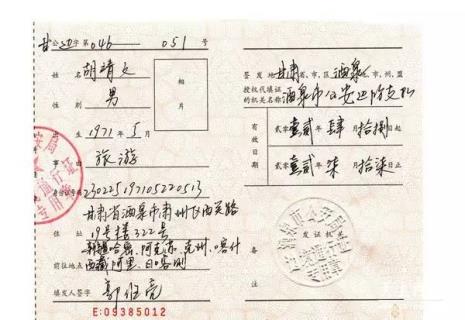 甘公边字第046 051号
姓名 胡靖文
性别 男
相片
出生 1971年5月
事由 旅游
身份证号码 230225197105220513
甘肃省酒泉市肃州区西关路
住址 19号楼322号
新疆哈密、阿克苏、克州、喀什
前往地点 西藏阿里、日喀则
填发人签字
E:09385012
签发地 甘肃省、市、区 酒泉 地、市、州、盟
授权代填证的机关名称 酒泉市公安边防支队
有效日期
贰零壹贰年肆月拾捌日起
贰零壹贰年柒月拾柒日止
发证机关
边境通行证
专用章
备注